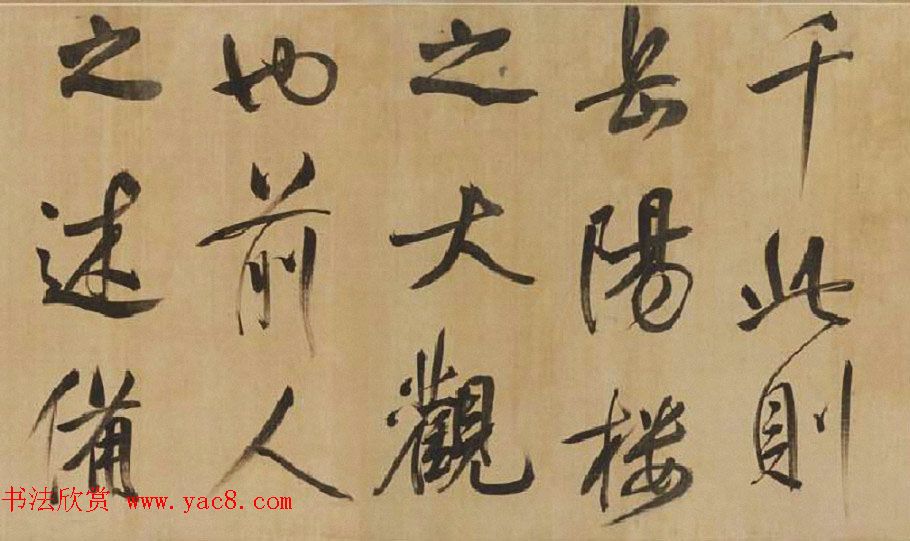 千此則
岳陽楼
之大觀
也前人
之述備
书法欣赏 www.yac8.com